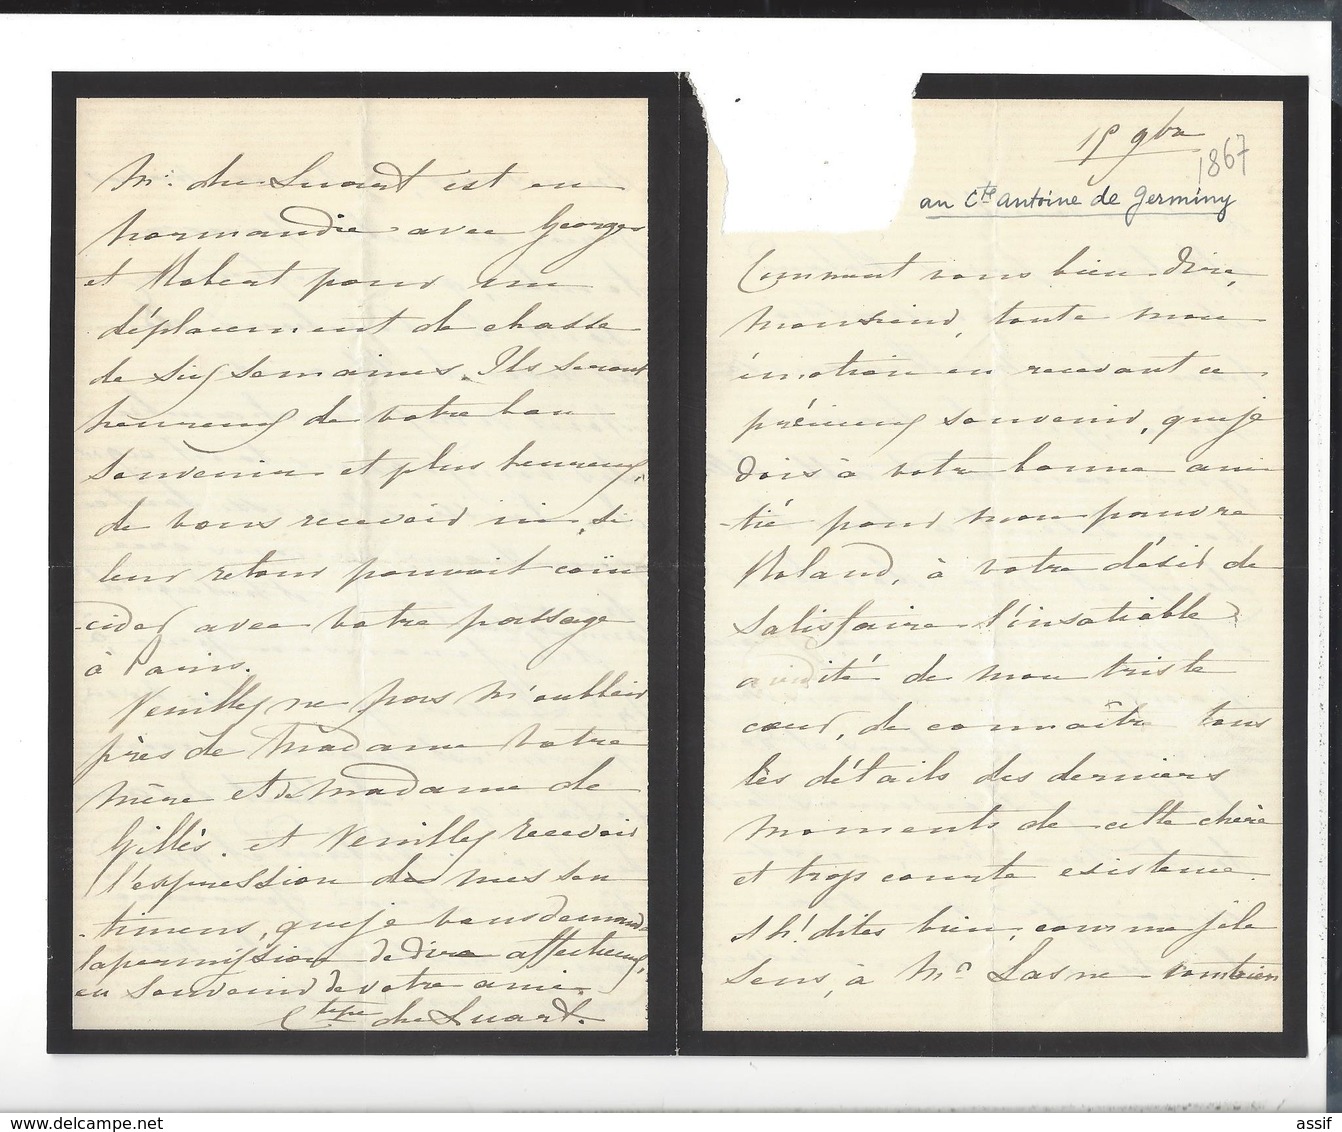 15 9bre
1867
au Cte Antoine de Germiny
Comment vous bien dire,
Monsieur, toute mon
émotion en recevant ce
précieux souvenir, que je
dois à votre bonne ami
-tié pour mon pauvre
Roland, à votre désir de
satisfaire l'insatiable
avidité de mon triste
cœur, de connaître tous
les détails des derniers
moments de cette chère
et trop courte existence.
Ah! dites bien, comme je le
sens, à Mr Lasne combien
Mr. du Luart est en
Normandie avec Georges
et Robert pour un
déplacement de chasse
de six semaines. Ils seront
heureux de votre bon
souvenir et plus heureux,
de vous recevoir ici, si
leur retour pouvait coïn
-cider avec votre passage
à Paris.
Veuillez ne pas m'oublier
près de Madame votre
mère et de Madame de
Gillès. et Veuillez recevoir
l'expression de mes sen
-timens, que je vous demande
la permission de dire affectueux,
en souvenir de votre ami.
Ctesse du Luart.
assif